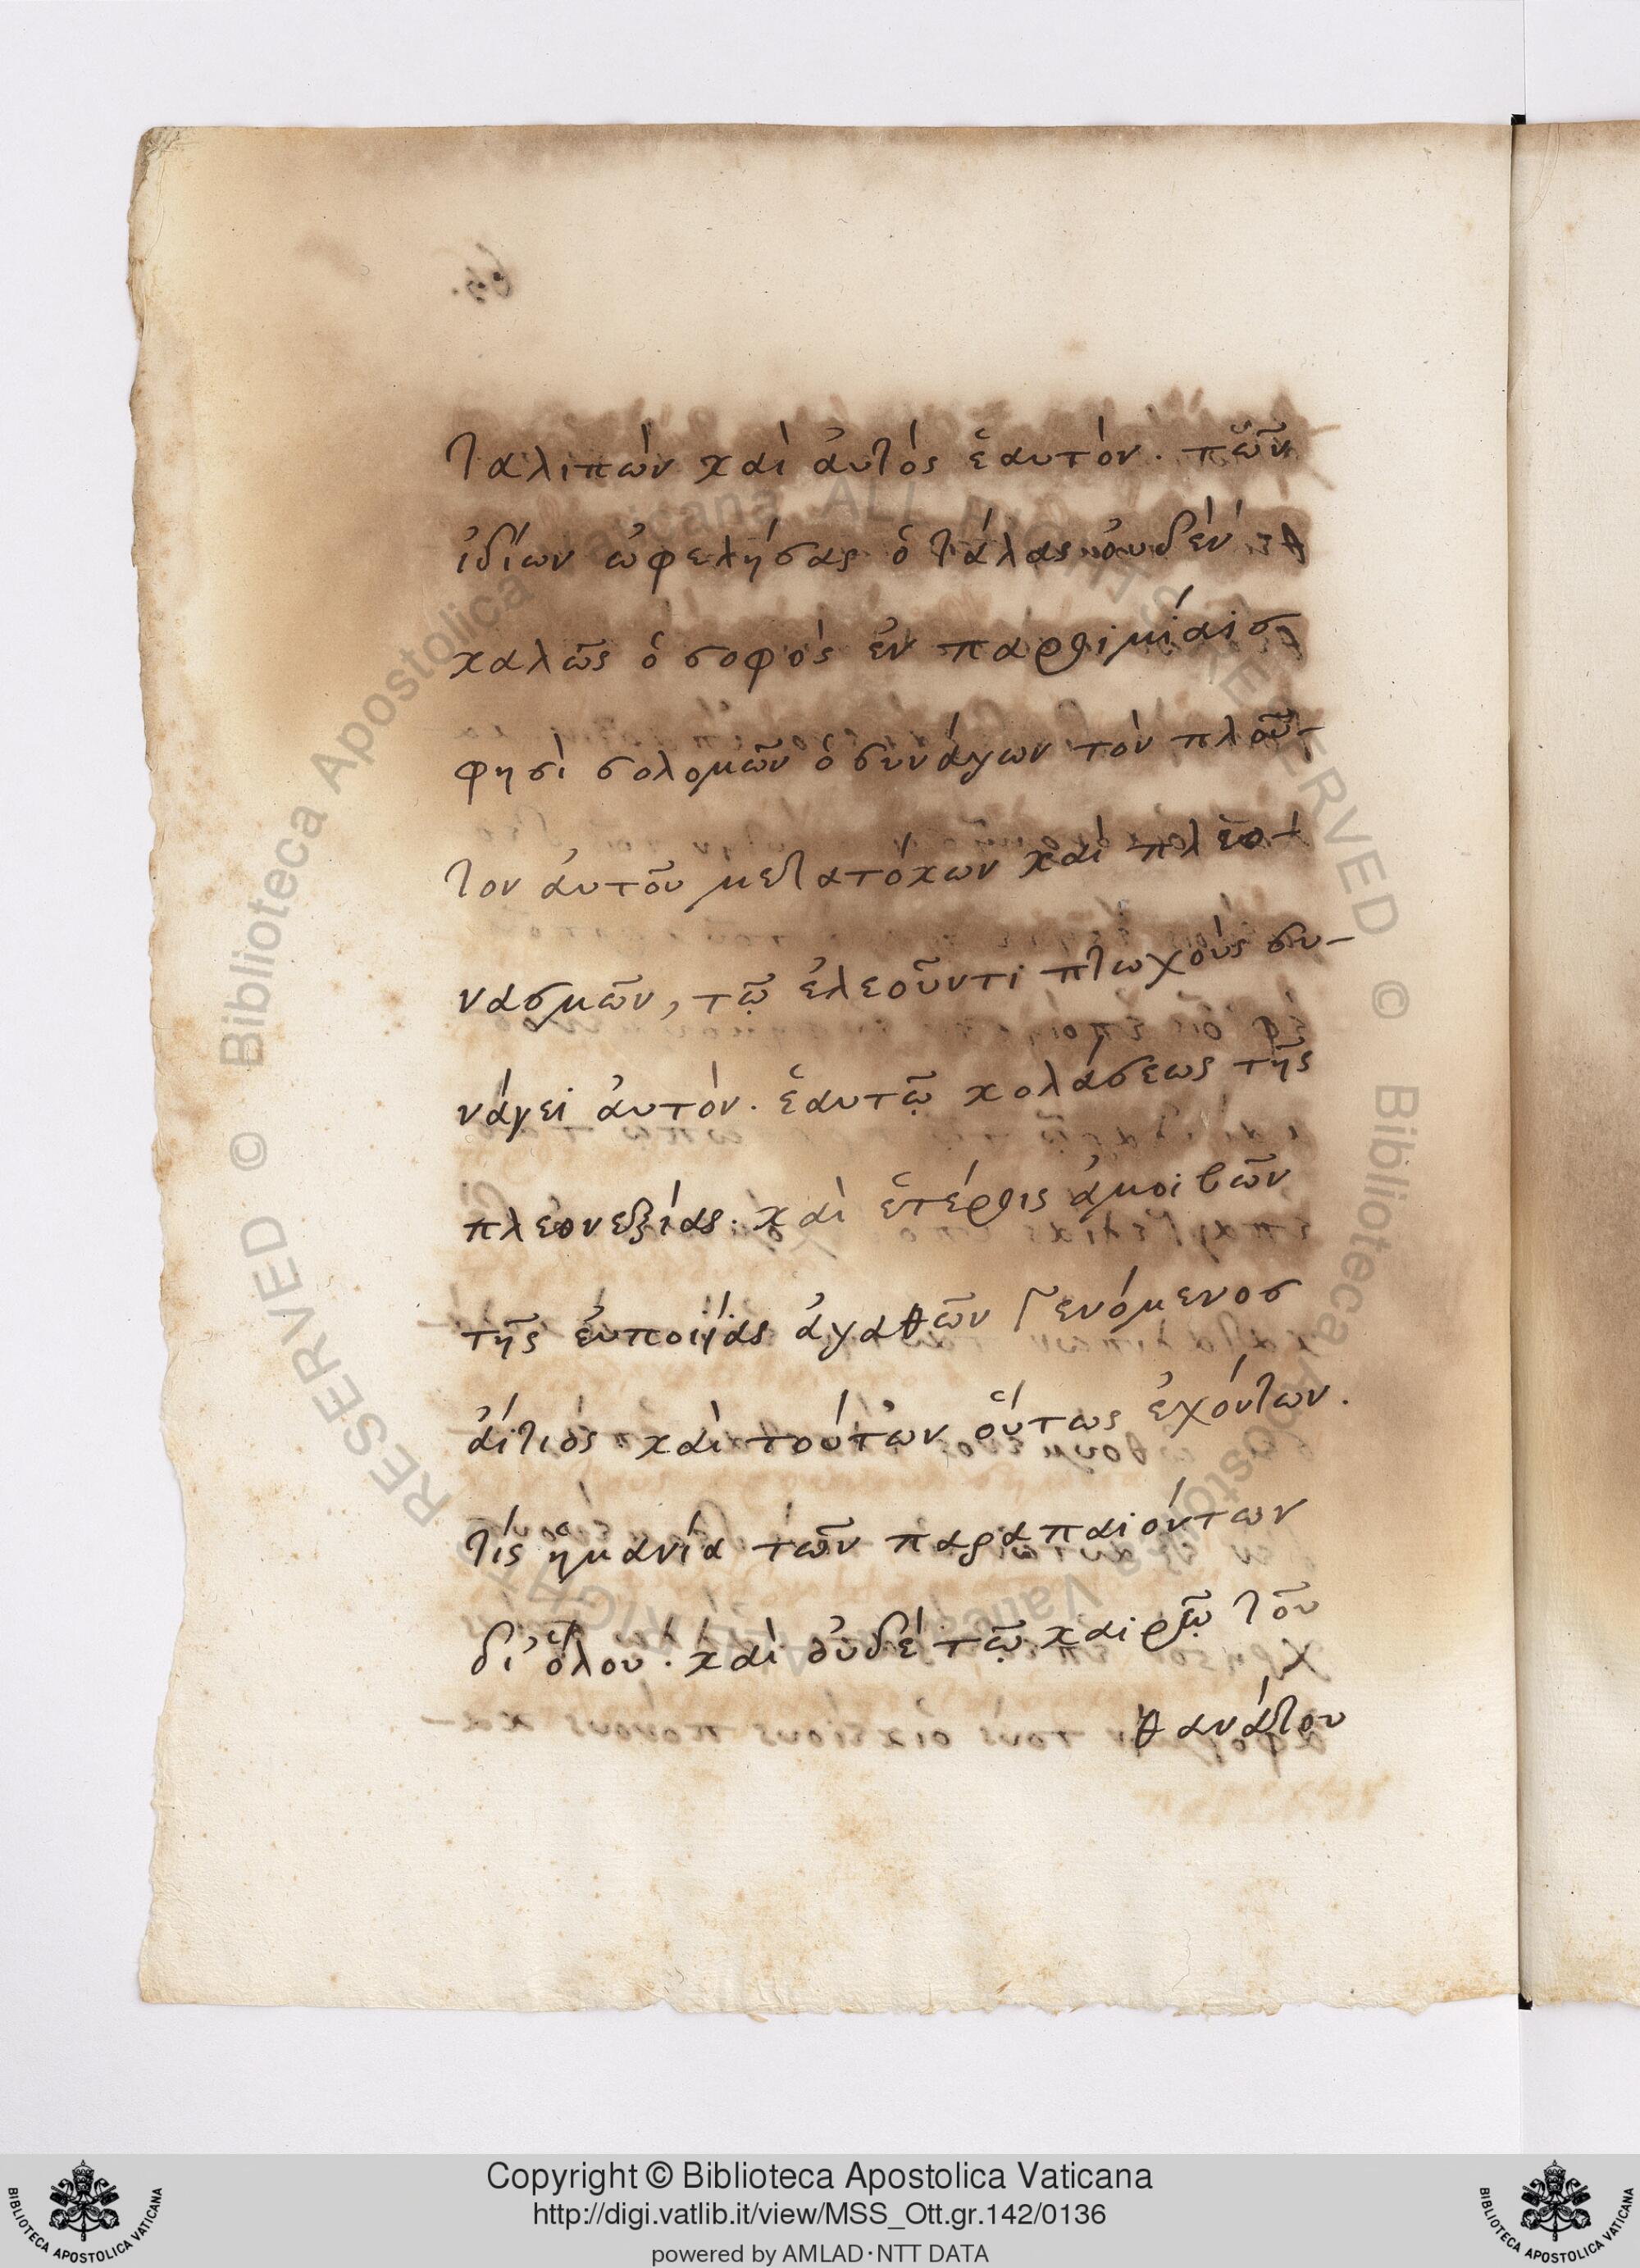 ταλιπὼν καὶ ἀυτὸς ἑαυτὸν. πῶν
ἰδίων ὠφελήσας ὁ τάλας ὀυδὲν
καλῶς ὁ σοφὸς ἐν παροιμίαισ
φησὶ σολομῶν ὁ συνάγων τὸν πλοῦ-
τον ἀυτοῦ μετατόκων καὶ πλεο-
νασμῶν, τῶ ἐλεοῦντι πτωχοὺς συ-
νάγει ἀυτὸν. ἑαυτῶ κολάσεως τῆς
πλεονεξίας. καὶ ἑτέροις ἀμοιβῶν
τῆς ἐυποιΐας ἀγαθῶν γενόμενοσ
ἀίτιος καὶ τούτων ὅυτως ἐχόντων.
τίς ἡμανία τῶν παραπαιόντων
δι' ὅλου. καὶ ὀυδὲ τῶ καιρῶ τοῦ
θανάτου
Copyright © Biblioteca Apostolica Vaticana
http://digi.vatlib.it/view/MSS_Ott.gr.142/0136
powered by AMLAD·NTT DATA
BIBLIOTECA APOSTOLICA VATICANA
BIBLIOTECA APOSTOLICA VATICANA